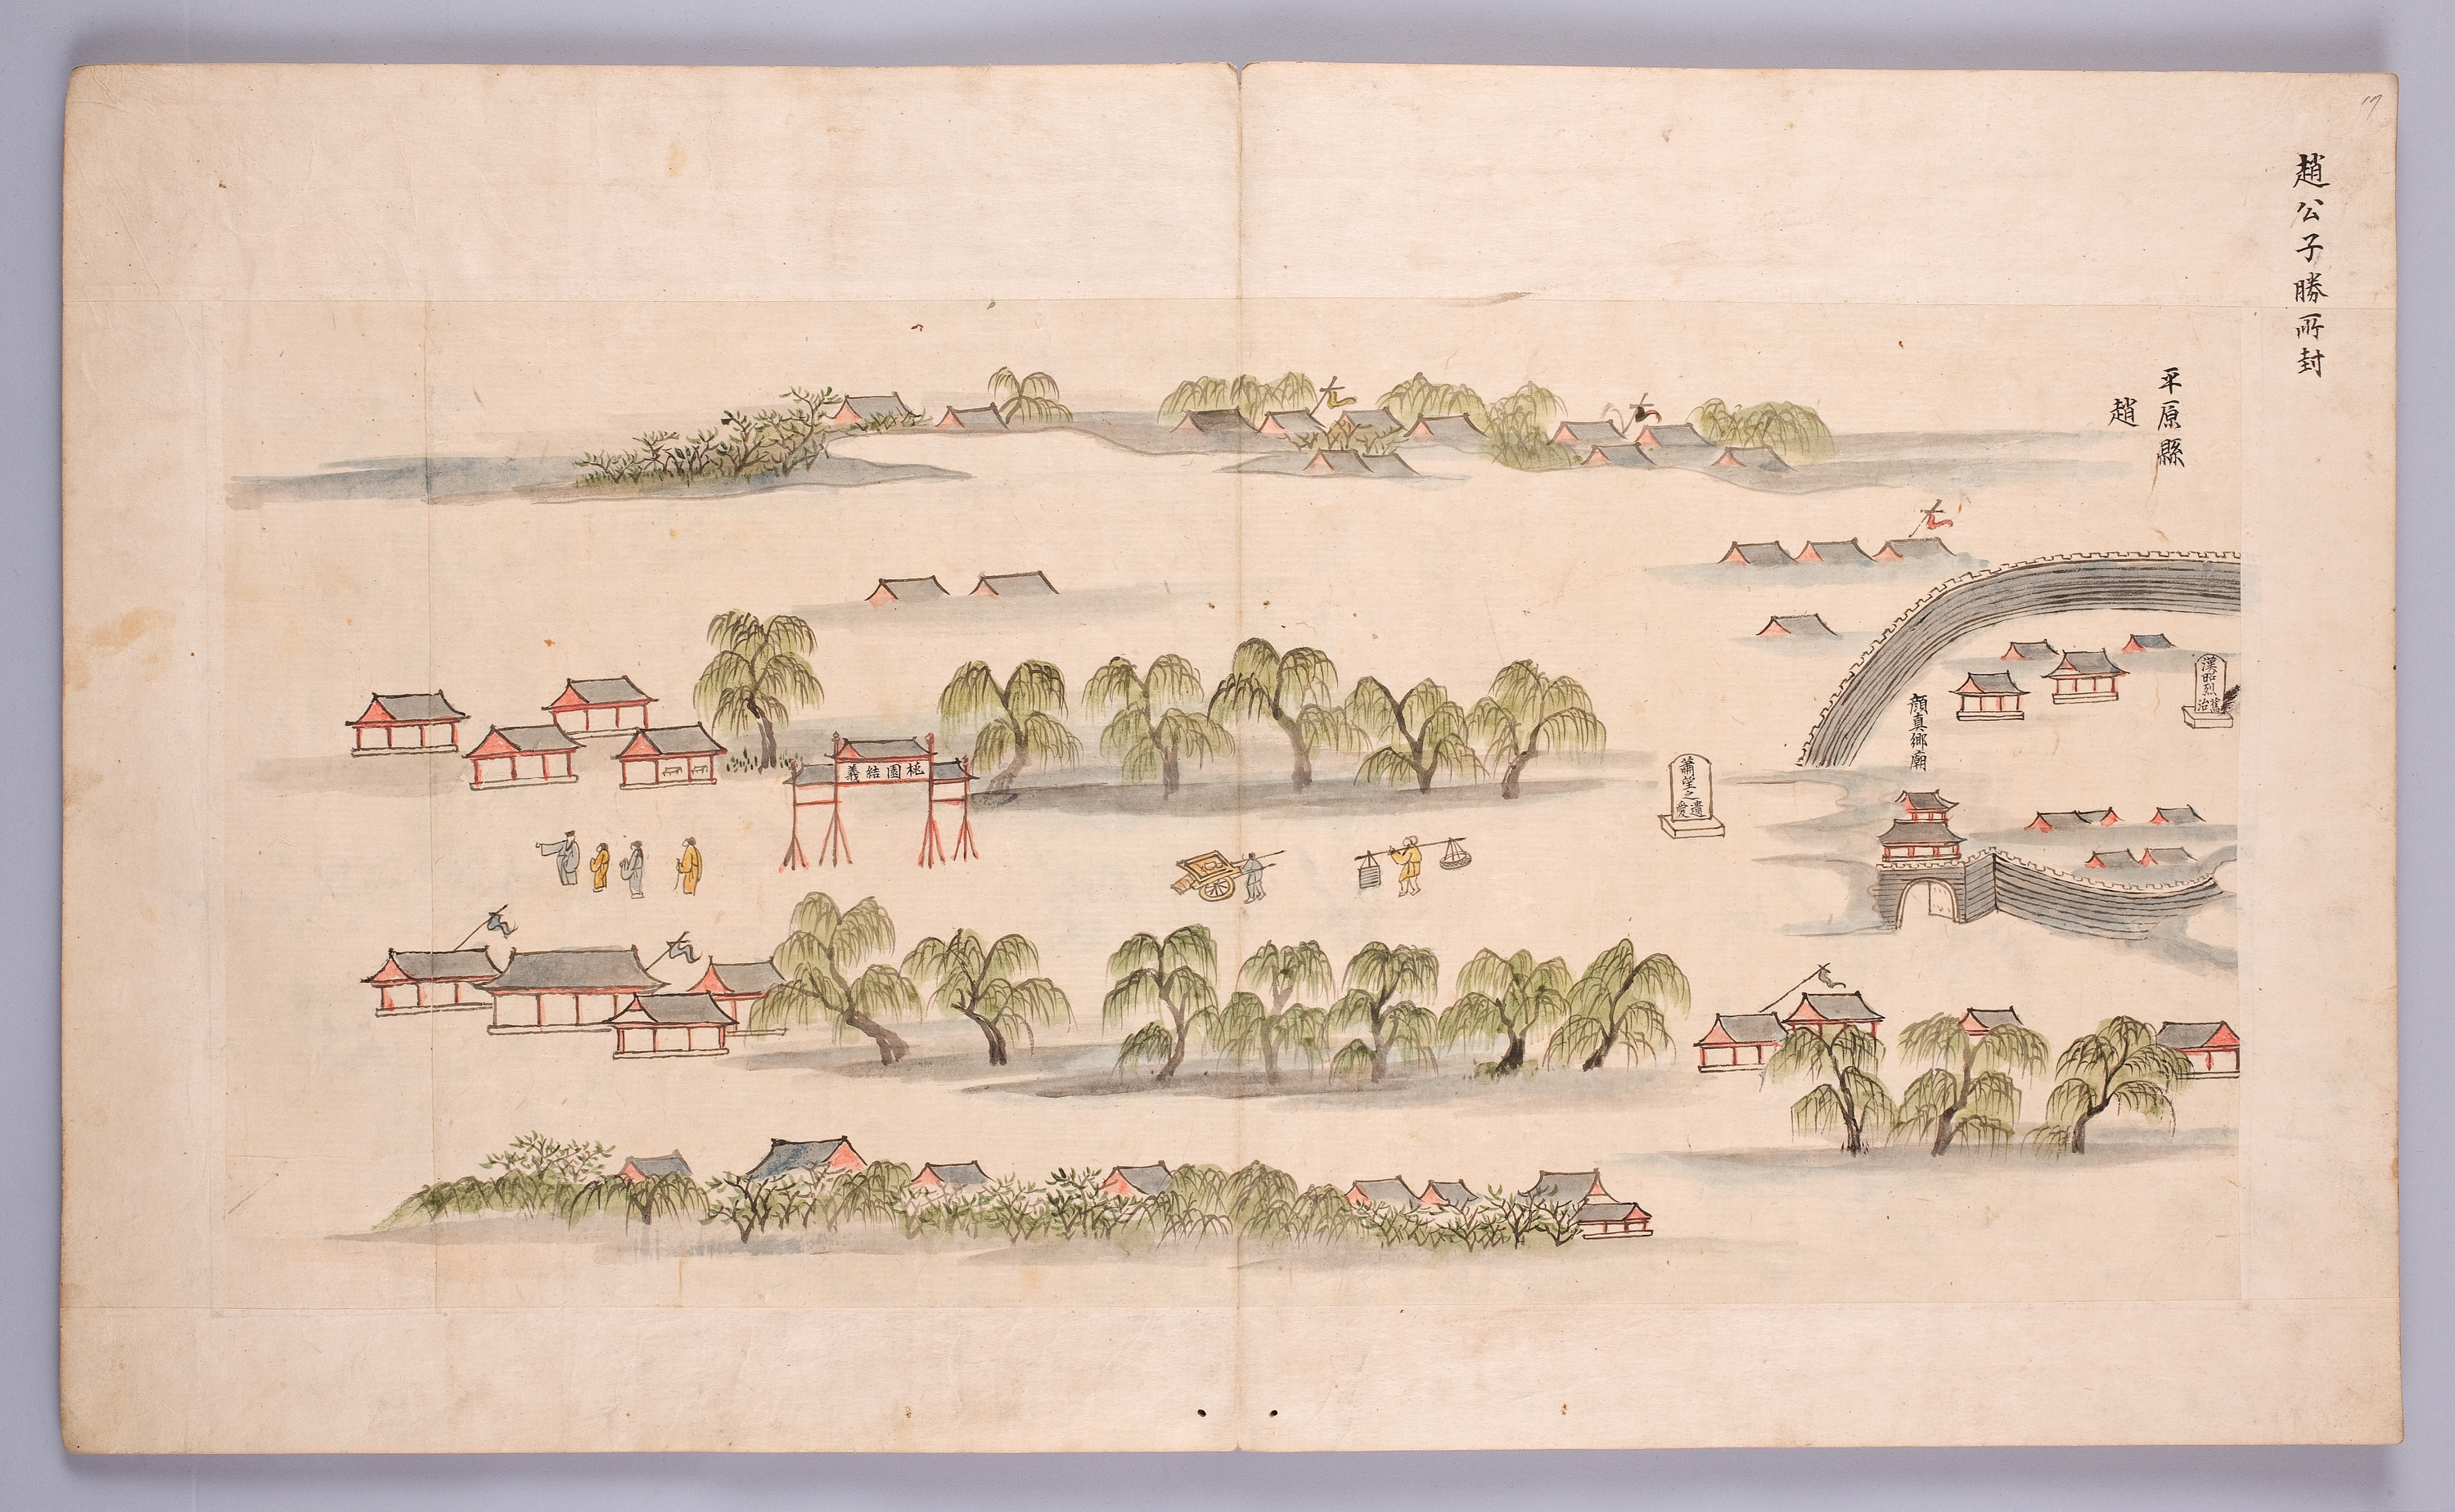 17
趙公子勝所封
平原縣
趙
漢昭烈舊治
顔真卿廟
蕭望之遺愛
桃園結義